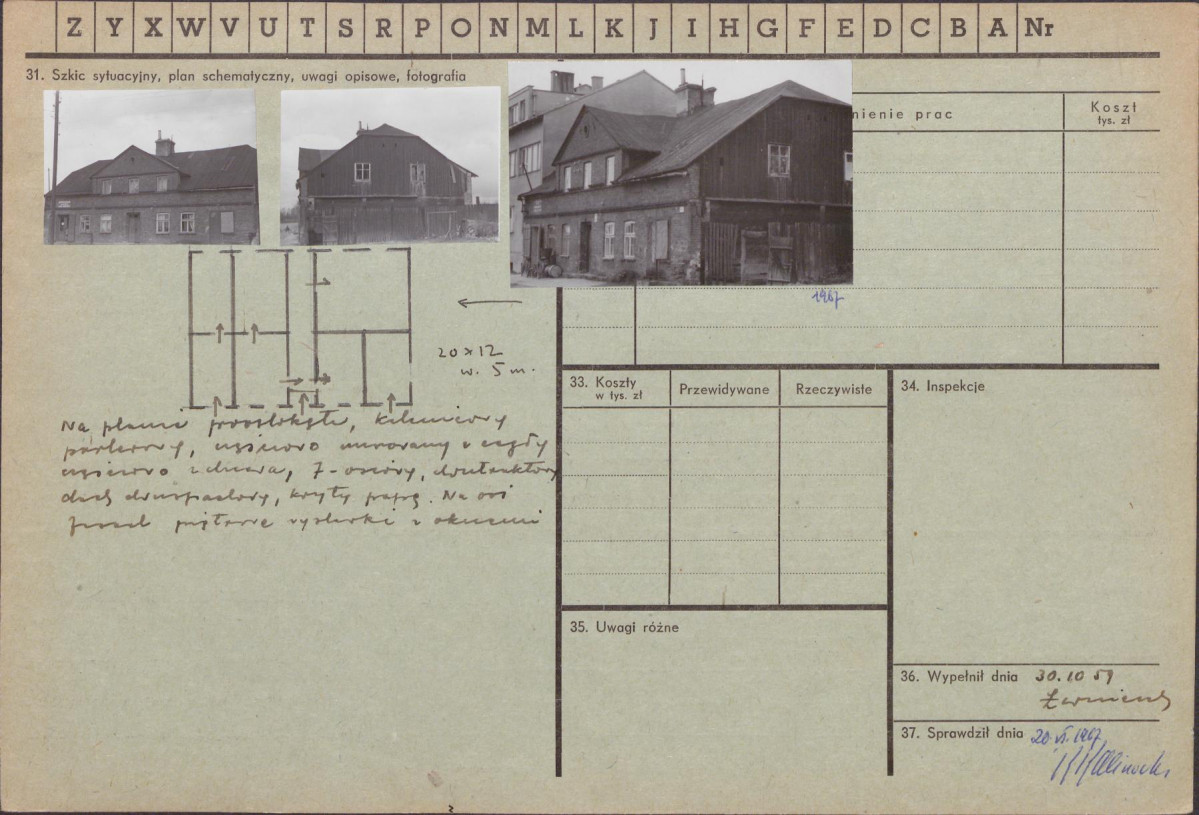 Z Y X W V U T S R P O N M L K J I H G F E D C B A Nr
31. Szkic sytuacyjny, plan schematyczny, uwagi opisowe, fotografia
nienie prac
Koszt
tys. zł
1967
20 x 12
w. 5 m.
Na planie prostokąta,
parterowy, częściowo murowany z cegły
częściowo z drewna, 7-osiowy, dwutraktowy
dach dwuspadowy, kryty papą. Na osi
piętrowe wystawki z oknami
33. Koszty
w tys. zł
Przewidywane
Rzeczywiste
34. Inspekcje
35. Uwagi różne
36. Wypełnił dnia 30.10 59
37. Sprawdził dnia 20.VI.1967